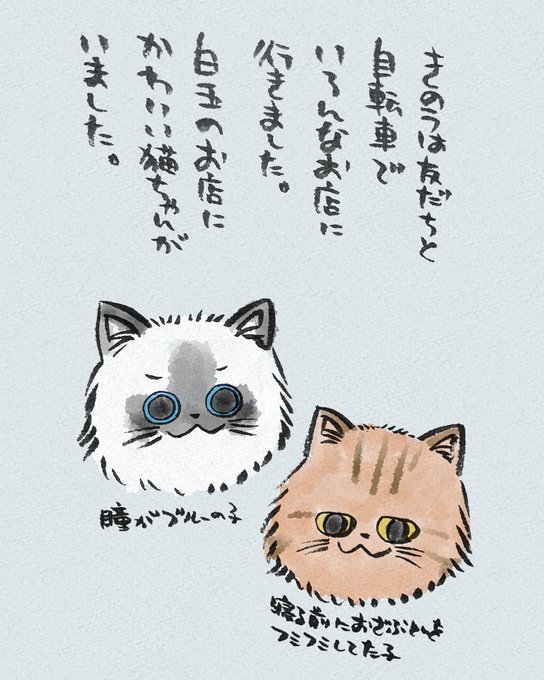 きのうは友だちと
自転車で
いろんなお店に
行きました。
白玉のお店に
かわいい猫ちゃんが
いました。
瞳がブルーの子
寝る前におざぶとんを
フミフミしてた子